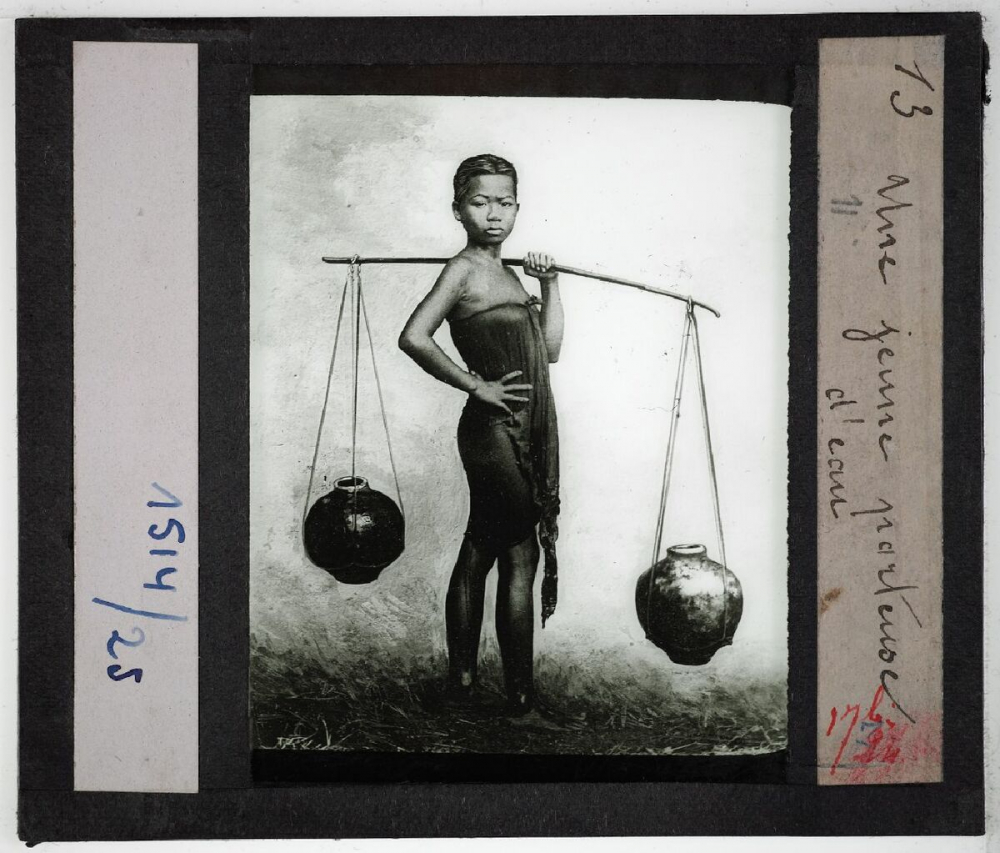 1514/25
13 Une jeune porteuse
d'eau
11